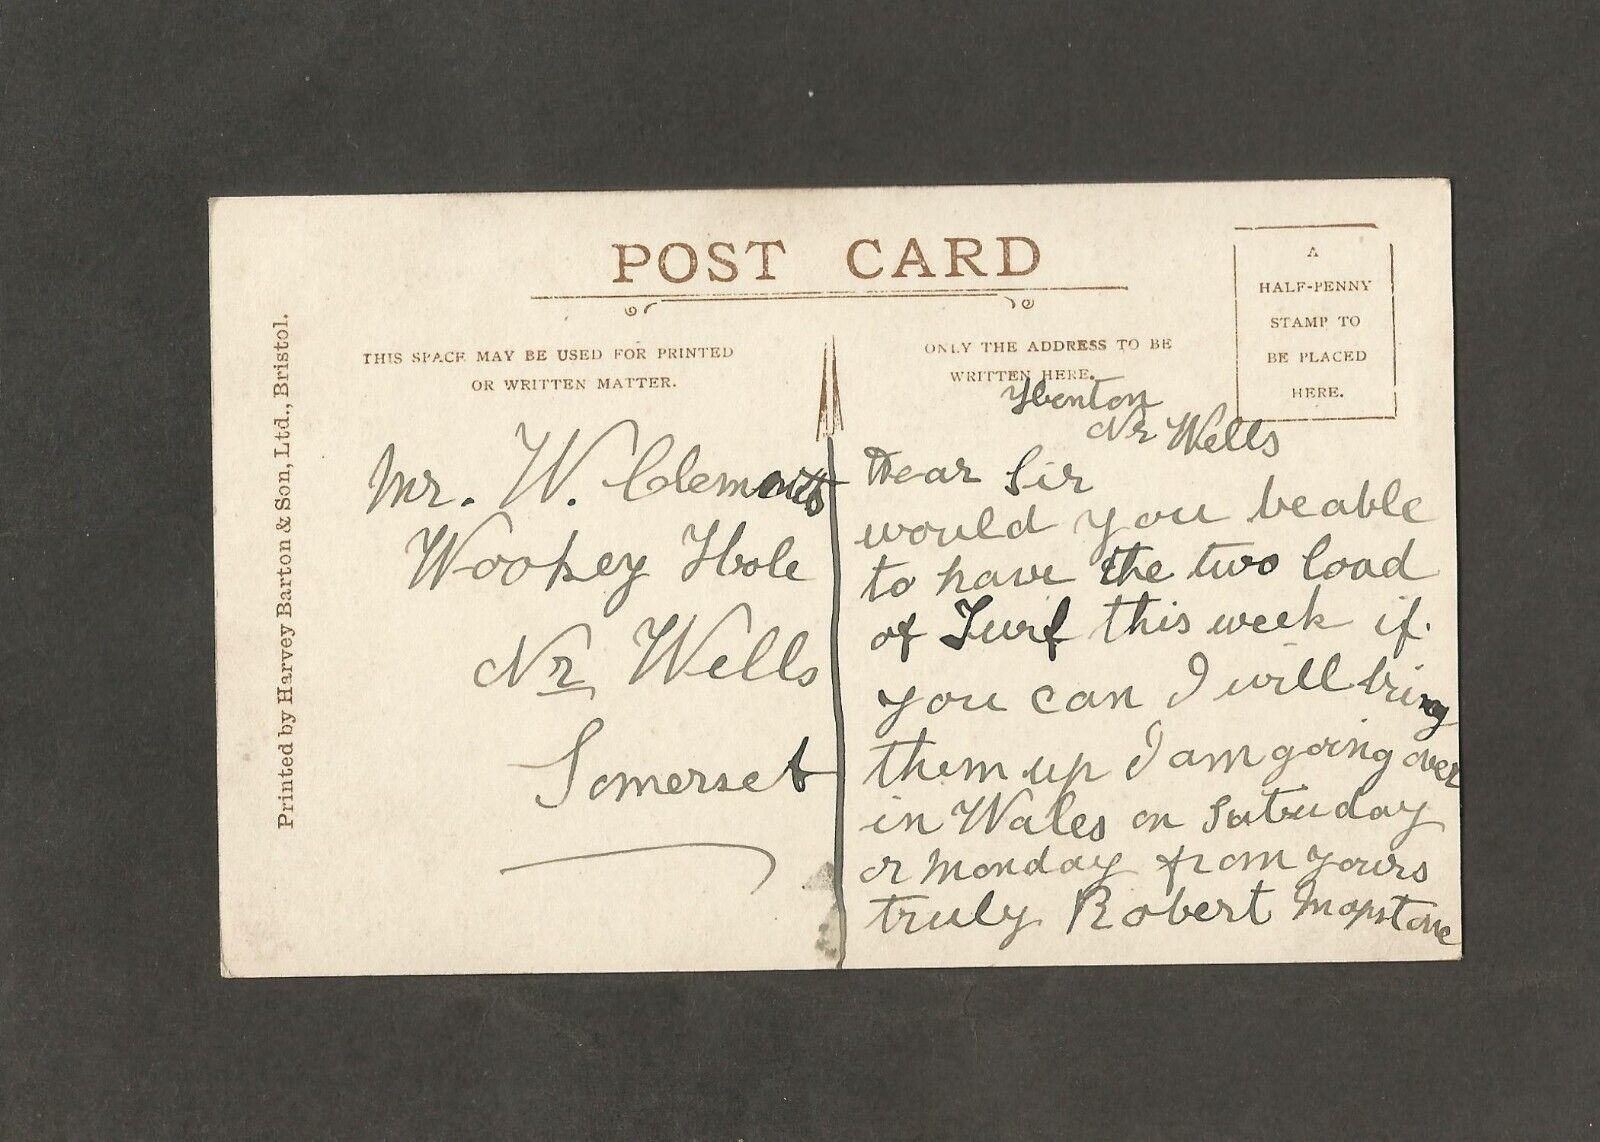 POST CARD
A
HALF-PENNY
STAMP TO
BE PLACED
HERE.
THIS SPACE MAY BE USED FOR PRINTED
OR WRITTEN MATTER.
ONLY THE ADDRESS TO BE
WRITTEN HERE.
Printed by Harvey Barton & Son, Ltd., Bristol.
Mr. W. Clements
Wookey Hole
Nr Wells
Somerset
Henton
Nr Wells
Dear Sir
would you be able
to have the two load
of Turf this week if.
you can I will bring
them up I am going over
in Wales on Satruday
or Monday from yours
truly Robert Mapstone